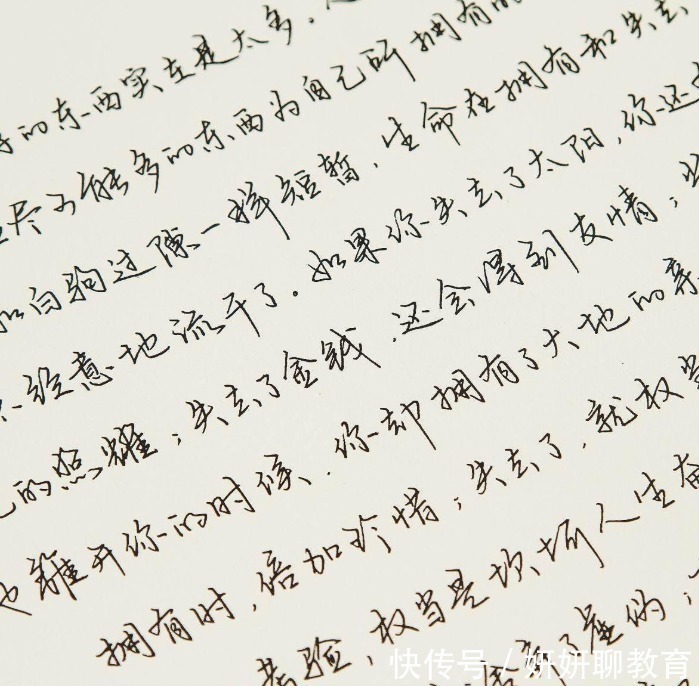 的东西实在是太多.
尽可能多的东西为自己所拥有的
白驹过隙一样短暂,生命在拥有和失去
经意地流干了.如果你失去了太阳,你还
的照耀;失去了金钱,还会得到友情;
也离开你的时候,你却拥有了大地的亲
拥有时,倍加珍惜;失去了,就权当
考验,权当是坎坷人生奋
了虚伪;
快传号 / 妍妍聊教育